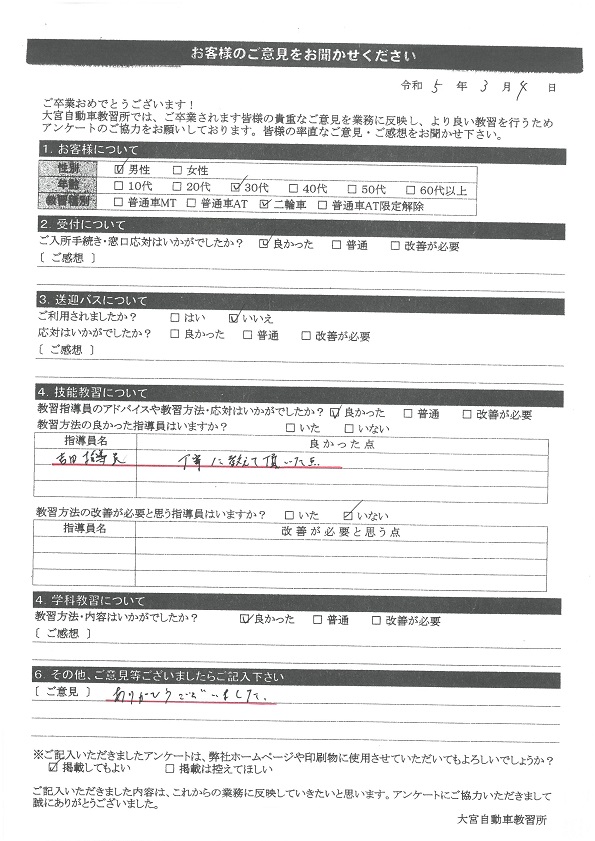 お客様のご意見をお聞かせください
令和 5 年 3 月 4 日
ご卒業おめでとうございます！
大宮自動車教習所では、ご卒業されます皆様の貴重なご意見を業務に反映し、より良い教習を行うため
アンケートのご協力をお願いしております。皆様の率直なご意見・ご感想をお聞かせ下さい。
1. お客様について
性別 ☑男性 □女性
年齢 □10代 □20代 ☑30代 □40代 □50代 □60代以上
教習種別 □普通車MT □普通車AT ☑二輪車 □普通車AT限定解除
2. 受付について
ご入所手続き・窓口応対はいかがでしたか？ ☑良かった □普通 □改善が必要
〔 ご感想 〕
3. 送迎バスについて
ご利用されましたか？ □はい ☑いいえ
応対はいかがでしたか？ □良かった □普通 □改善が必要
〔 ご感想 〕
4. 技能教習について
教習指導員のアドバイスや教習方法・応対はいかがでしたか？ ☑良かった □普通 □改善が必要
教習方法の良かった指導員はいますか？ □いた □いない
指導員名 良かった点
吉田指導員 丁寧に教えて頂いた点
教習方法の改善が必要と思う指導員はいますか？ □いた ☑いない
指導員名 改善が必要と思う点
4. 学科教習について
教習方法・内容はいかがでしたか？ ☑良かった □普通 □改善が必要
〔 ご感想 〕
6. その他、ご意見等ございましたらご記入下さい
〔 ご意見 〕 ありがとうございました。
※ご記入いただきましたアンケートは、弊社ホームページや印刷物に使用させていただいてもよろしいでしょうか？
☑掲載してもよい □掲載は控えてほしい
ご記入いただきました内容は、これからの業務に反映していきたいと思います。アンケートにご協力いただきまして
誠にありがとうございました。
大宮自動車教習所